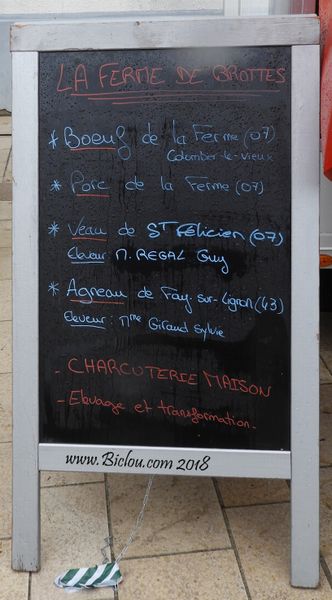 LA FERME DE GROTTES
* Boeuf de la Ferme (07)
Colombier-le-vieux
* Porc de la Ferme (07)
* Veau de ST Félicien (07)
Eleveur M. REGAL Guy
* Agneau de Fay-sur-Lignon (43)
Eleveur : Mme Giraud Sylvie
- CHARCUTERIE MAISON
- Elevage et transformation -
www.Biclou.com 2018